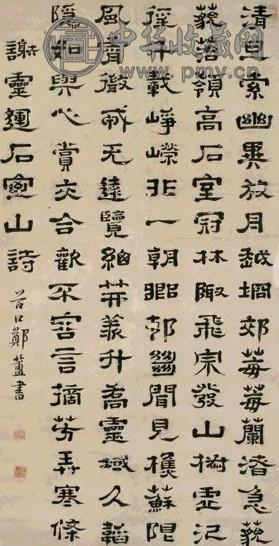 清旦索幽異放舟越坰郊莓莓蘭渚急藐
藐落領高石室冠林陬飛泉發山椒虛泛
徑千載崢嶸非一朝鄉邨絕聞見樵蘇限
風霄微戎无遠覽總笄羡升喬靈域久韜
隱如與心賞交合歡不容言摘芳弄寒條
謝靈運石室山詩
谷口鄭簠書
中华收藏网